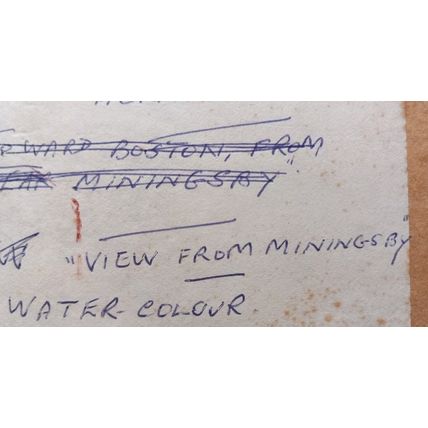 BOSTON, FROM
MININGSBY"
"VIEW FROM MININGSBY"
WATER-COLOUR.